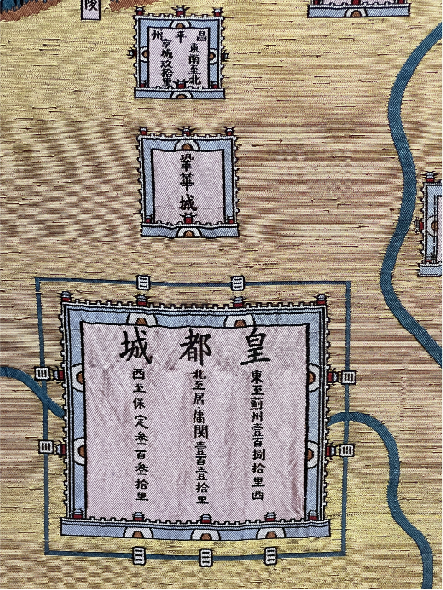 陵
昌平州
東南至北
京城玖拾里
鞏華城
皇都城
東至薊州壹百捌拾里西
北至居庸関壹百壹拾里
西至保定叁百叁拾里